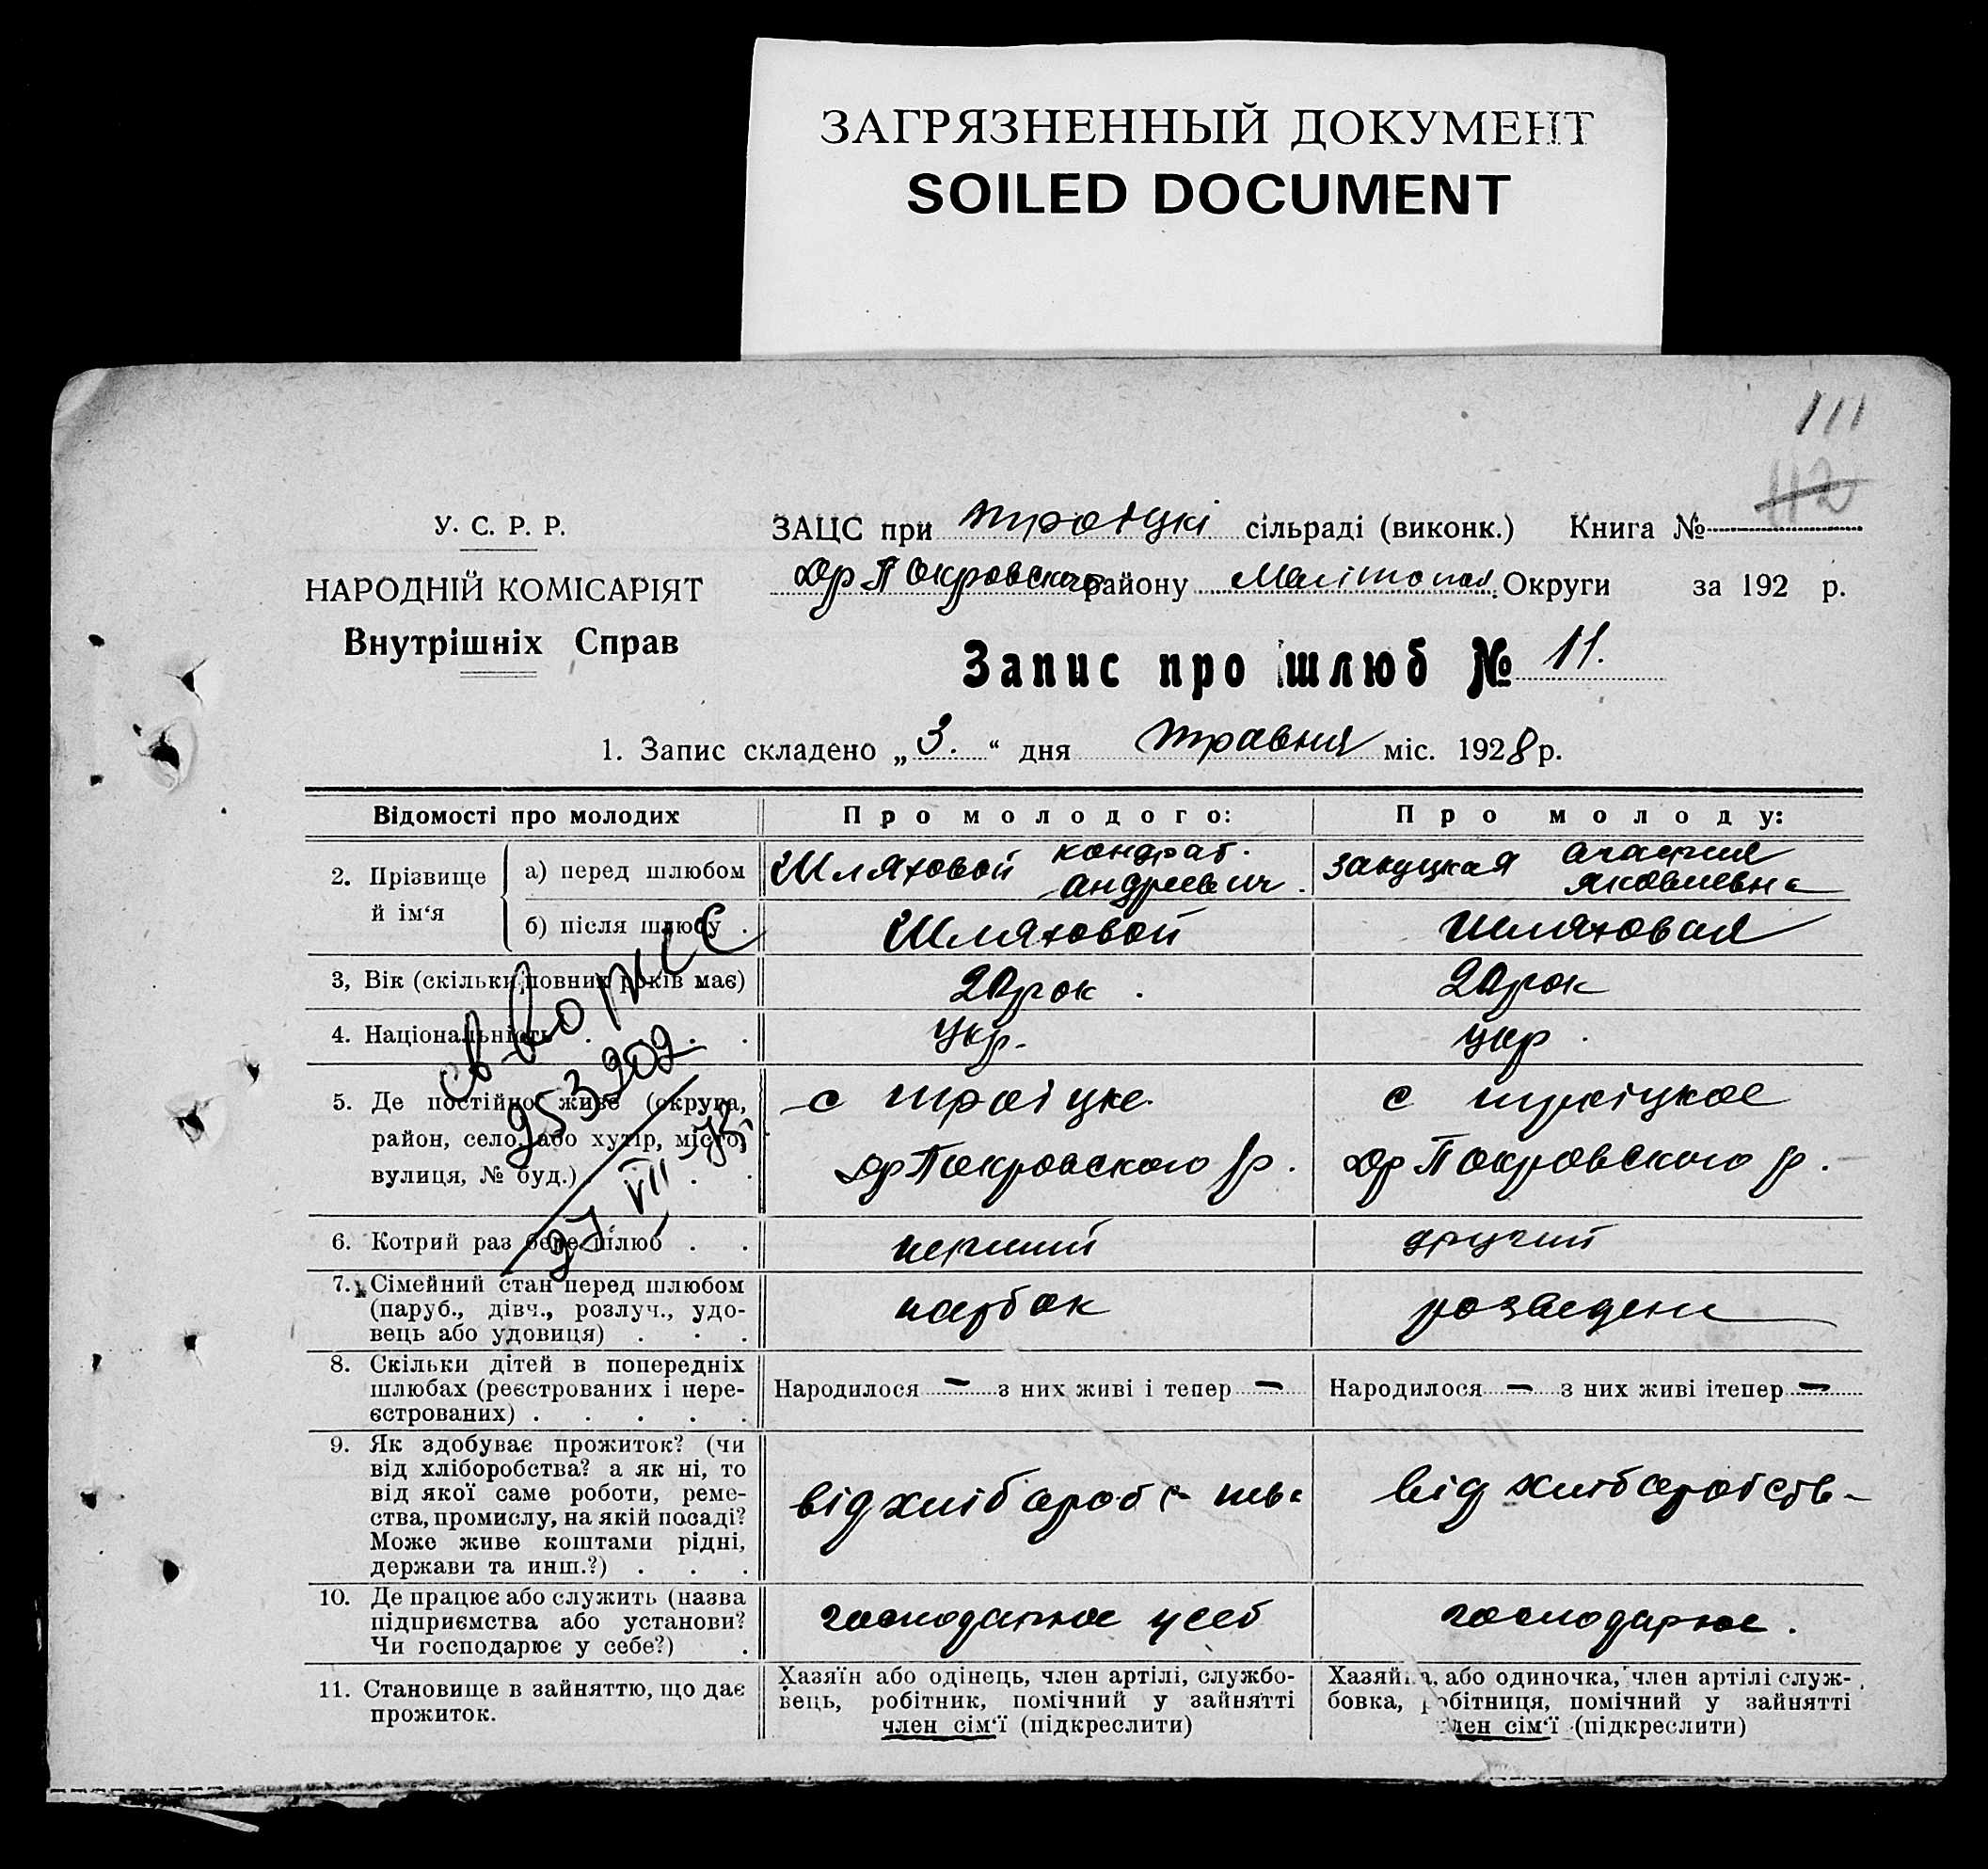 ЗАГРЯЗНЕННЫЙ ДОКУМЕНТ
SOILED DOCUMENT
111
112
У. С. Р. Р.
НАРОДНІЙ КОМІСАРІЯТ
Внутрішніх Справ
ЗАЦС при сільраді (виконк.) Книга №
Др Покровского району Округи за 192 р.
Запис про шлюб № 11.
1. Запис складено „ 3. “ дня травня міс. 1928 р.
Відомості про молодих
Про молодого:
Про молоду:
2. Прізвище й ім‘я
а) перед шлюбом
Шляховой кондрат.
андреевич.
яковлевна
б) після шлюбу .
Шляховой
Шляховая
3, Вік (скільки повних років має)
20 рок .
20 рок
4. Національність . . . .
Укр.
укр .
5. Де постійно живе (округа,
район, село, або хутір, місто,
вулиця, № буд.) . . .
с
Др Покровского р .
с
Др Покровского р .
6. Котрий раз бере шлюб . .
перший
другий
7. Сімейний стан перед шлюбом
(паруб., дівч., розлуч., удо-
вець або удовиця) . . .
парбок
розведен
8. Скільки дітей в попередніх
шлюбах (реєстрованих і нере-
єстрованих) . . . . .
Народилося — з них живі і тепер —
Народилося — з них живі ітепер —
9. Як здобуває прожиток? (чи
від хліборобства? а як ні, то
від якої саме роботи, реме-
ства, промислу, на якій посаді?
Може живе коштами рідні,
держави та инш.?) . . .
від
від
10. Де працює або служить (назва
підприємства або установи?
Чи господарює у себе?) .
господарює у себ
господарює .
11. Становище в зайняттю, що дає
прожиток.
Хазяїн або одінець, член артілі, службо-
вець, робітник, помічний у зайнятті
член сім‘ї (підкреслити)
Хазяйка, або одиночка, член артілі служ-
бовка, робітниця, помічний у зайнятті
член сім‘ї (підкреслити)
953202